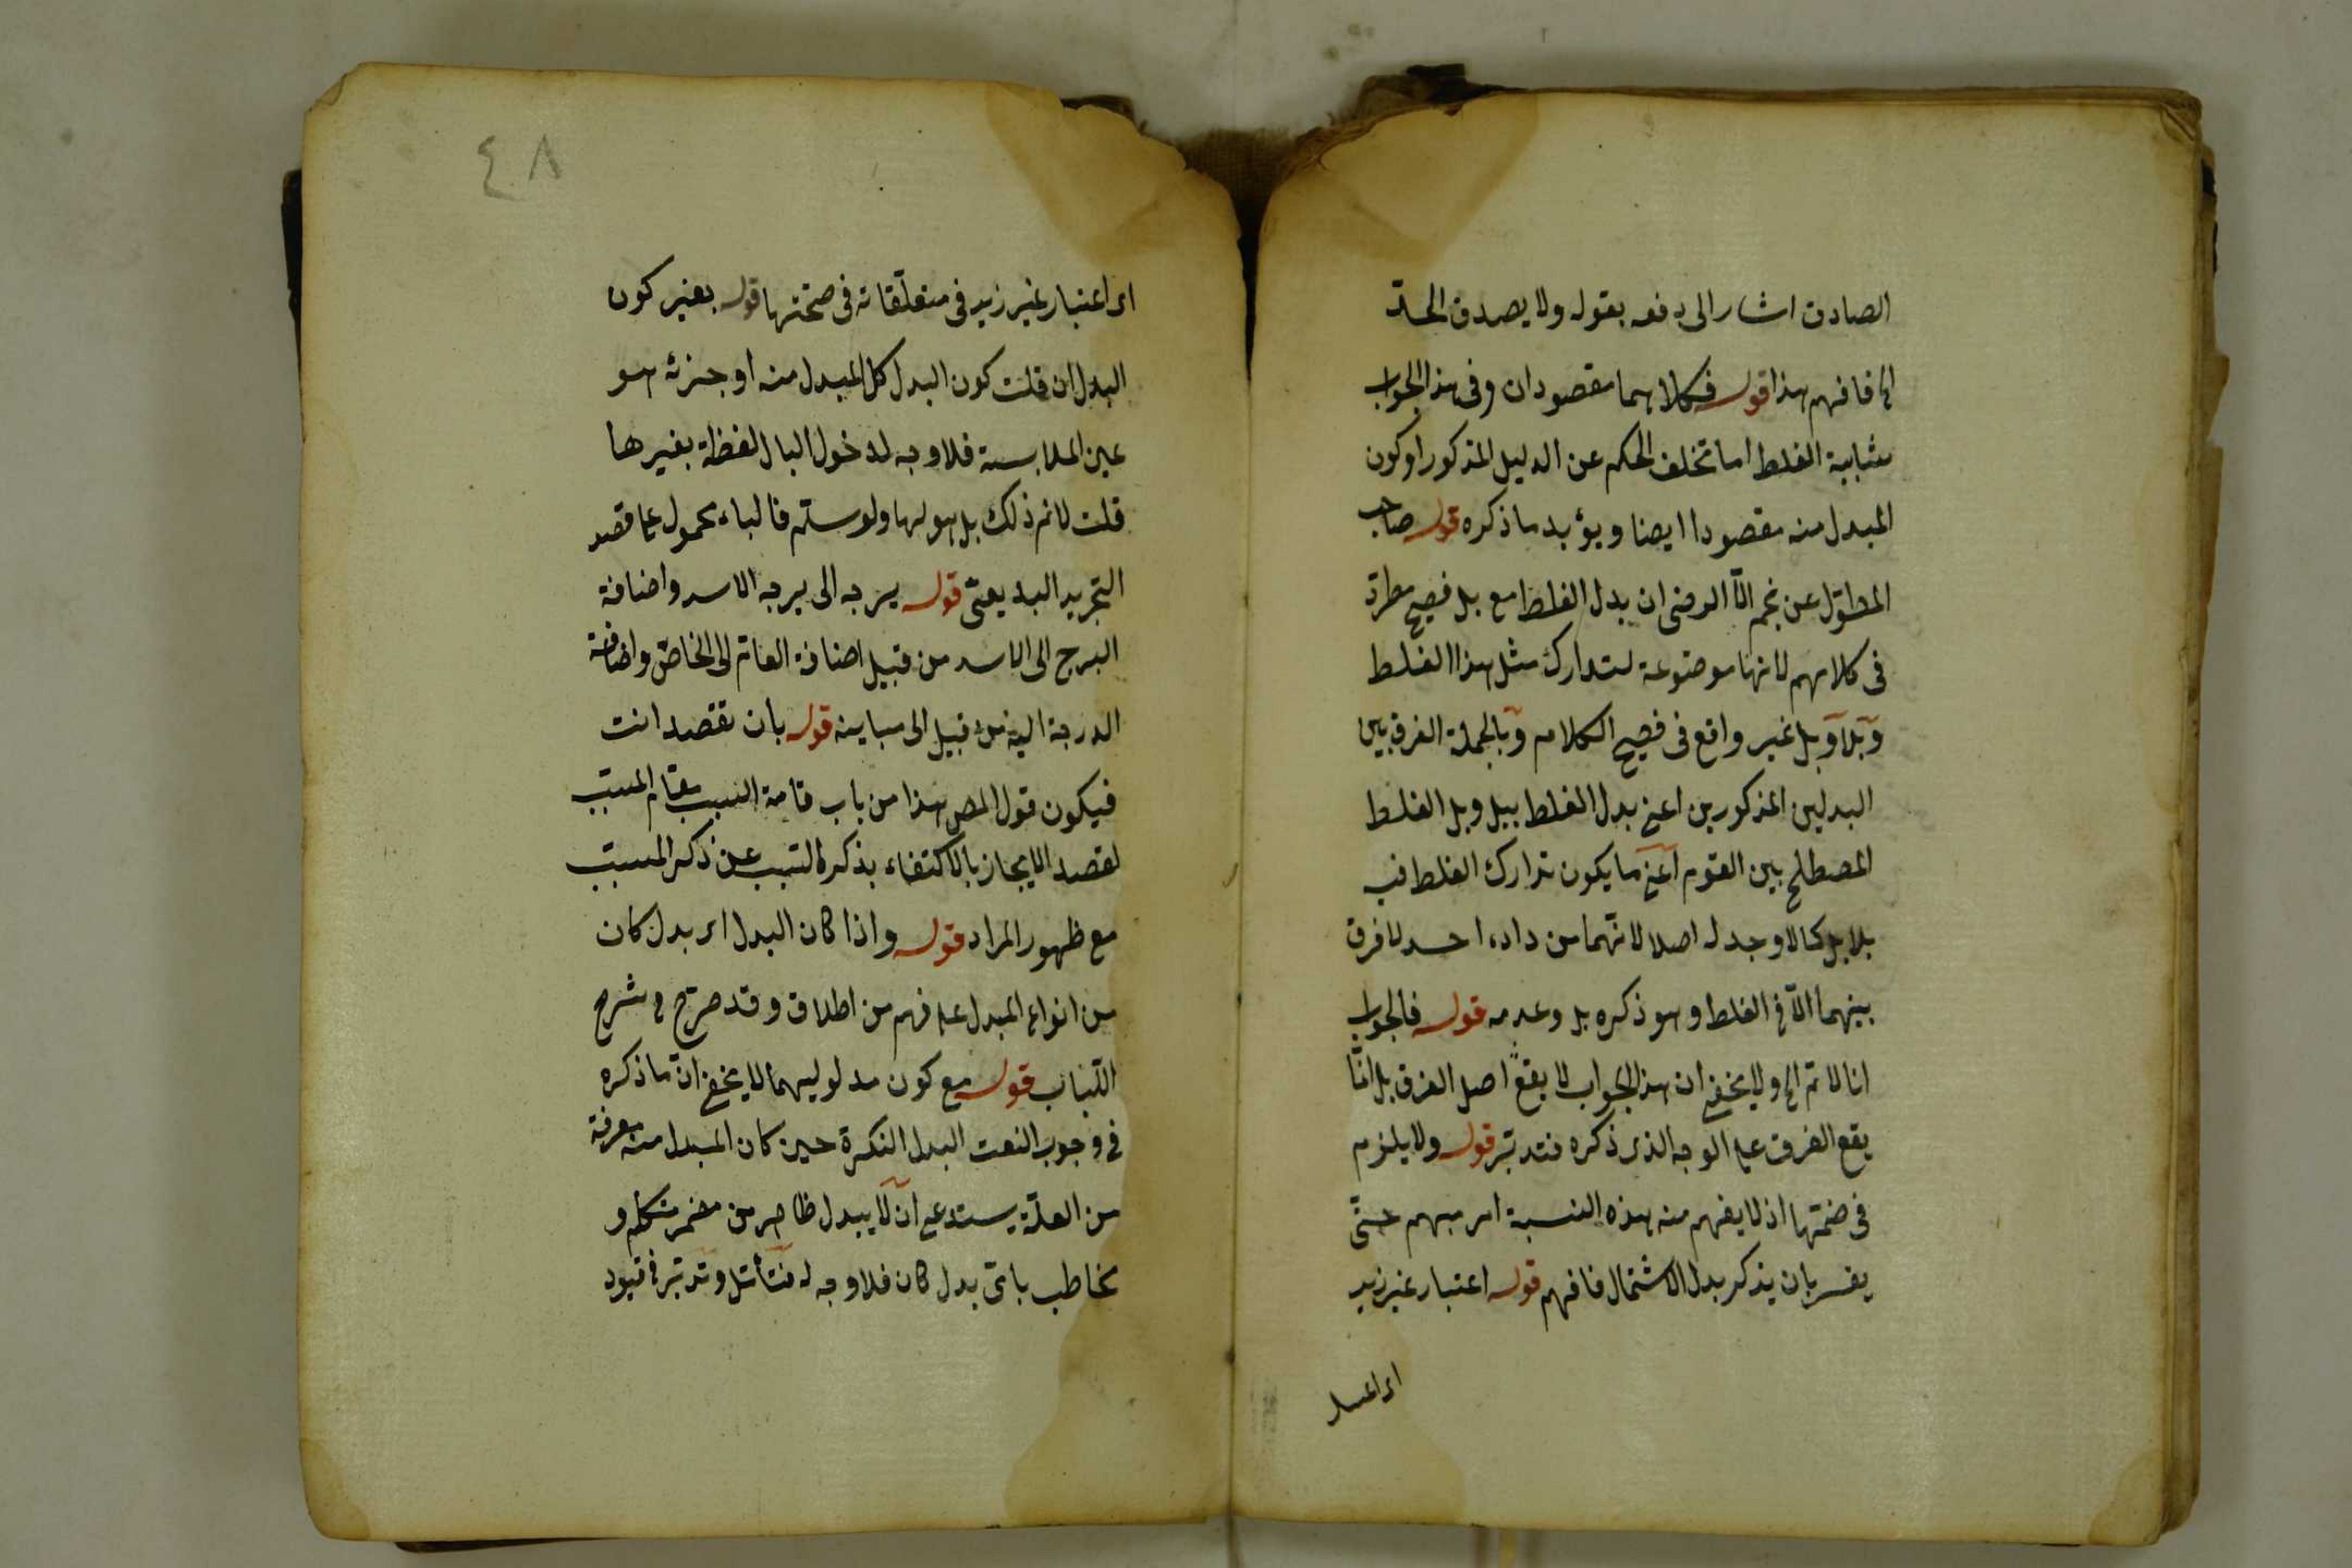 الصادق اشار الى دفعه بقوله ولا يصدق الحد
الخ فافهم هذا قوله فكلاهما مقصودان وفى هذا الجواب
شابية الغلط اما تخلف الحكم عن الدليل المذكور او كون
المبدل منه مقصودا ايضا ويؤيد ما ذكره قول صاحب
المطوّل عن نجم الأ الرضى ان بدل الغلط مع بل فصيح مطرد
فى كلامهم لانها موضوعة لتدارك مثل هذا الغلط
وبلا بل غير واقع فى فصيح الكلام وبالجملة الفرق بين
البدلين المذكورين اعنى بدل الغلط ببل وبل الغلط
المصطلح بين القوم اعنى ما يكون تدارك الغلط فيه
بلا بل كما لا وجد له اصلا لانهما من داء احد لا فرق
بينهما الا فى الغلط وهو ذكره بل وعدمه قوله فالجواب
انا لا نم الخ ولا يخفى ان هذا الجواب لا يقع اصل الفرق بل انما
يقع الفرق على الوجه الذى ذكره فتدبّر قوله ولا يلزم
فى ضمتها اذ لا يفهم منه هذه النسبة امر مبهم حتّى
يفسر بان يذكر بدل الاشتمال فافهم قوله اعتبار غير زيد
اى اعتبار
٤٨
اى اعتبار غير زيد فى متعلّقاته فى صحّتها قوله بغير كون
البدل ان قلت كون البدل كل المبدل منه او جزئه هو
عين الملابسة فلا وجه لدخول البا ل لفظة بغيرها
قلت لا نم ذلك بل هو لها ولو سلّم فالباء محمول على قصد
التجريد البديعىّ قوله برجه الى برجه الاسد واضافة
البرج الى الاسد من قبيل اضافة العامّ الى الخاصّ واضافة
الدرجة اليه من قبيل الى مباينه قوله بان تقصد انت
فيكون قول المص هذا من باب قامة السبب مقام المسبّب
لقصد الايجاز بالاكتفاء بذكر السبب عن ذكر المسبّب
مع ظهور المراد قوله واذا كان البدل اى بدل كان
من انواع المبدل على فهم من اطلاق وقد صرّح فى شرح
اللّباب قوله مع كون مدلوليهما لا يخفى انّ ما ذكره
فى وجوب النعت البدل النكرة حين كان المبدل منه معرفة
من العلّة يستدعى ان لا يبدل ظاهر من مضمر متكلم و
مخاطب باىّ بدل كان فلا وجه له فتأمّل وتدبّر فى قيود